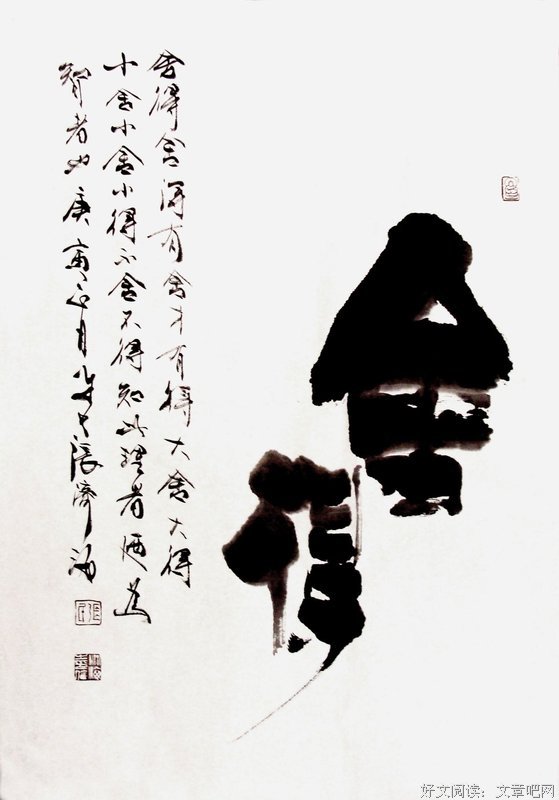 舍得
舍得舍得有舍才有得大舍大得
小舍小舍小得不舍不得知此理者便为
智者也庚寅月张济海
好文阅读：文章吧网